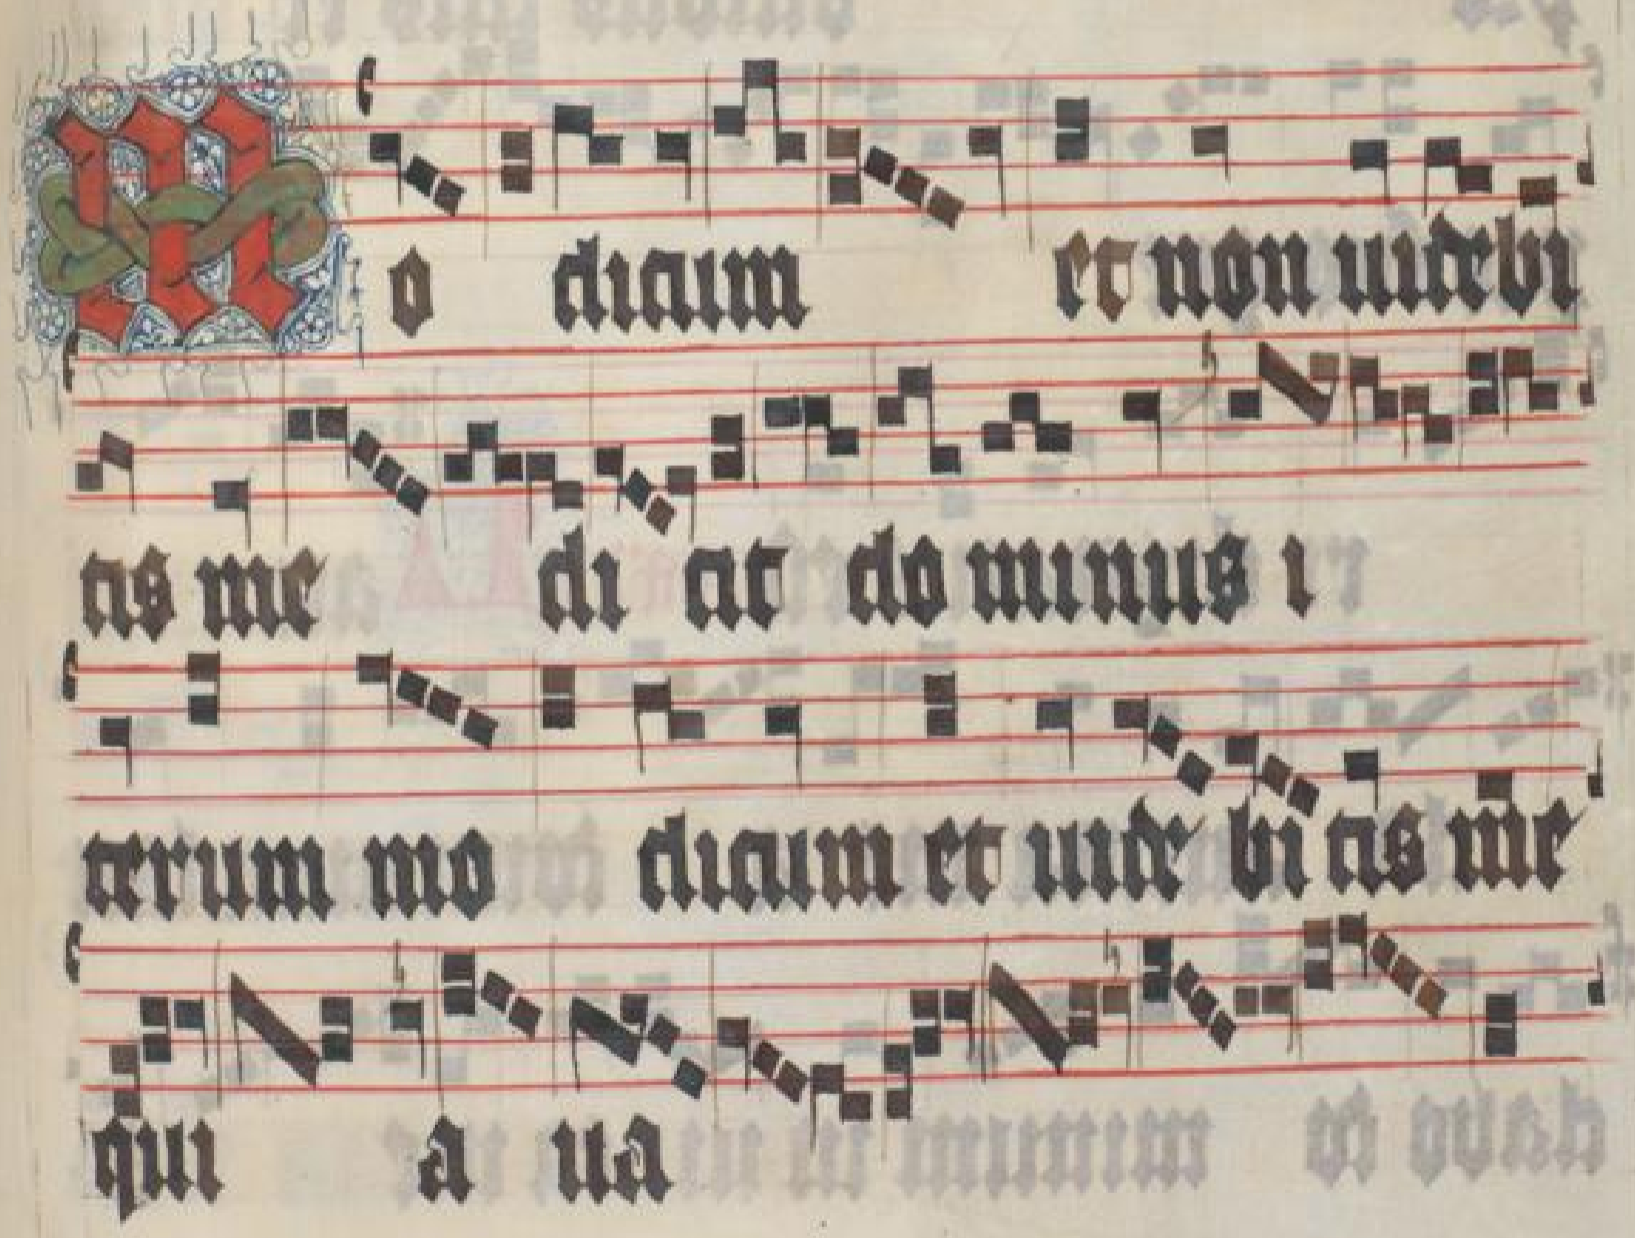 Mo dicum et non uidebi
tis me di cit do minus i
terum mo dicum et uide bi tis me
qui a ua